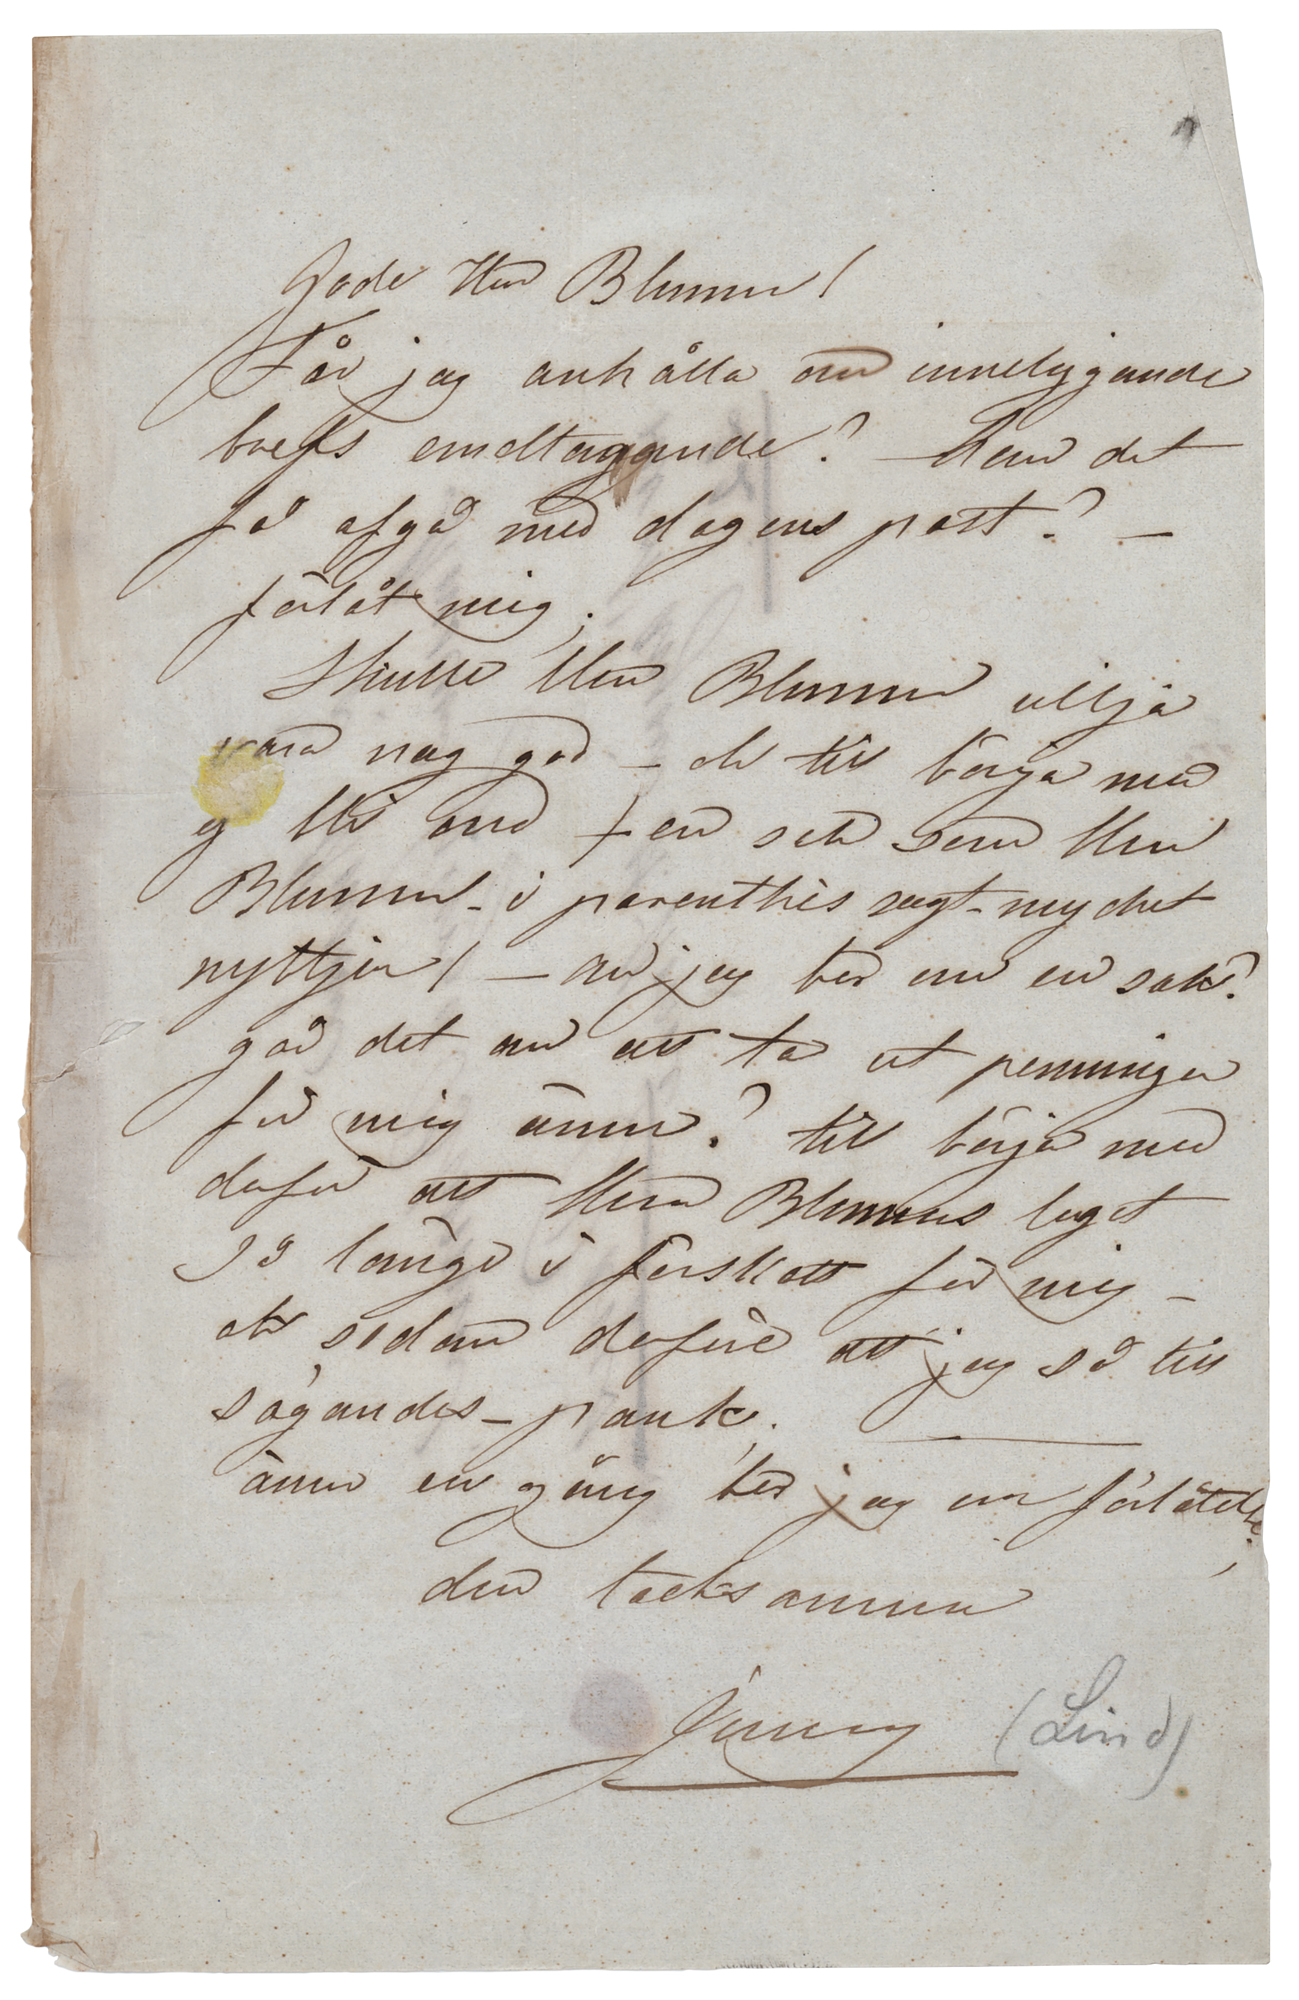 Gode Herr Blumm!
Får jag anhålla om inneliggande
brefs emottagande? kan det
få afgå med dagens post? —
förlåt mig.
Skulle Herr Blumm vilja
vara nog god — ock till börja med
ej bli ond / en sak som Herr
Blumm - i parenthes sagt - mycket
nyttjar / — om jag ber om en sak?
går det an att ta ut penningar
för mig ännu? till börja med
derför att Herr Blumms legat
så länge i förskott för mig —
ock sedan derföre att jag så till
sägandes - pank.
ännu en gång ber jag om förlåtelse.
den tacksamma
Jenny (Lind)